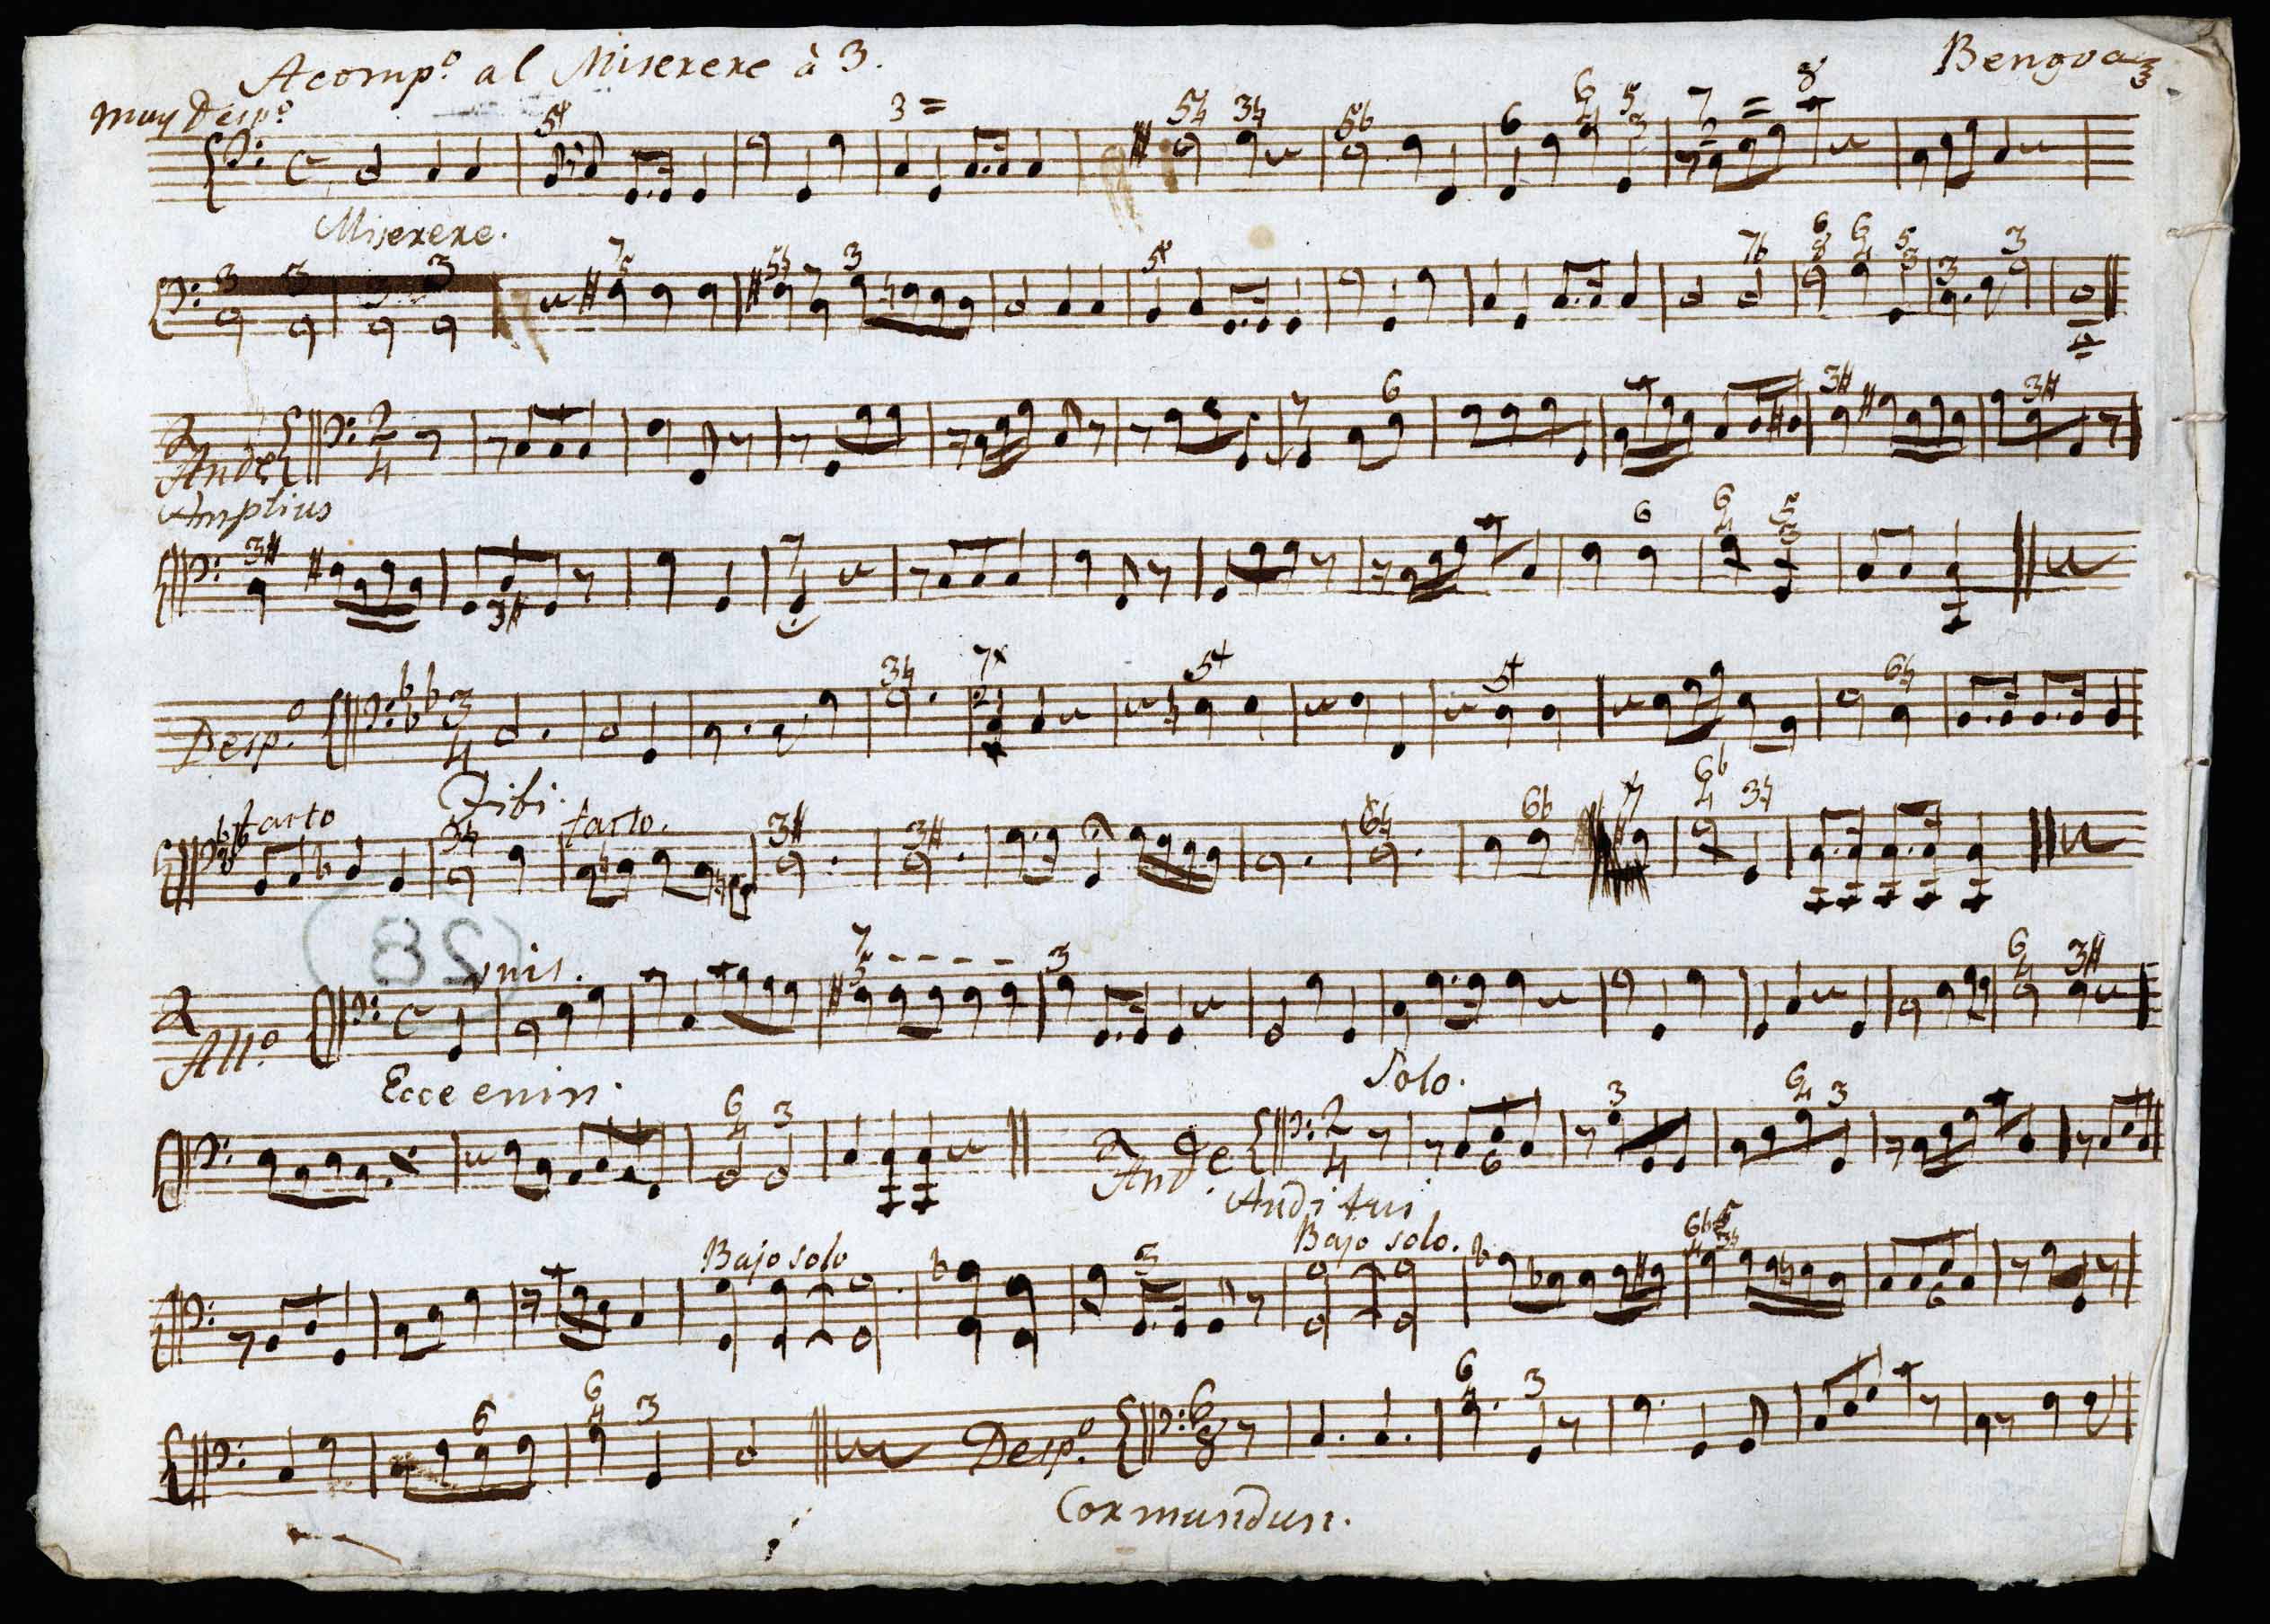 Acomp.º al Miserere à 3.
Bengoa
muy Desp.º
Miserere.
And.e
Amplius
Desp.º
Tibi.
tasto
tasto.
28
vnis.
All.º
Ecce enim.
Solo.
And.e
Auditui
Bajo solo
Bajo solo.
Desp.º
Cor mundun.